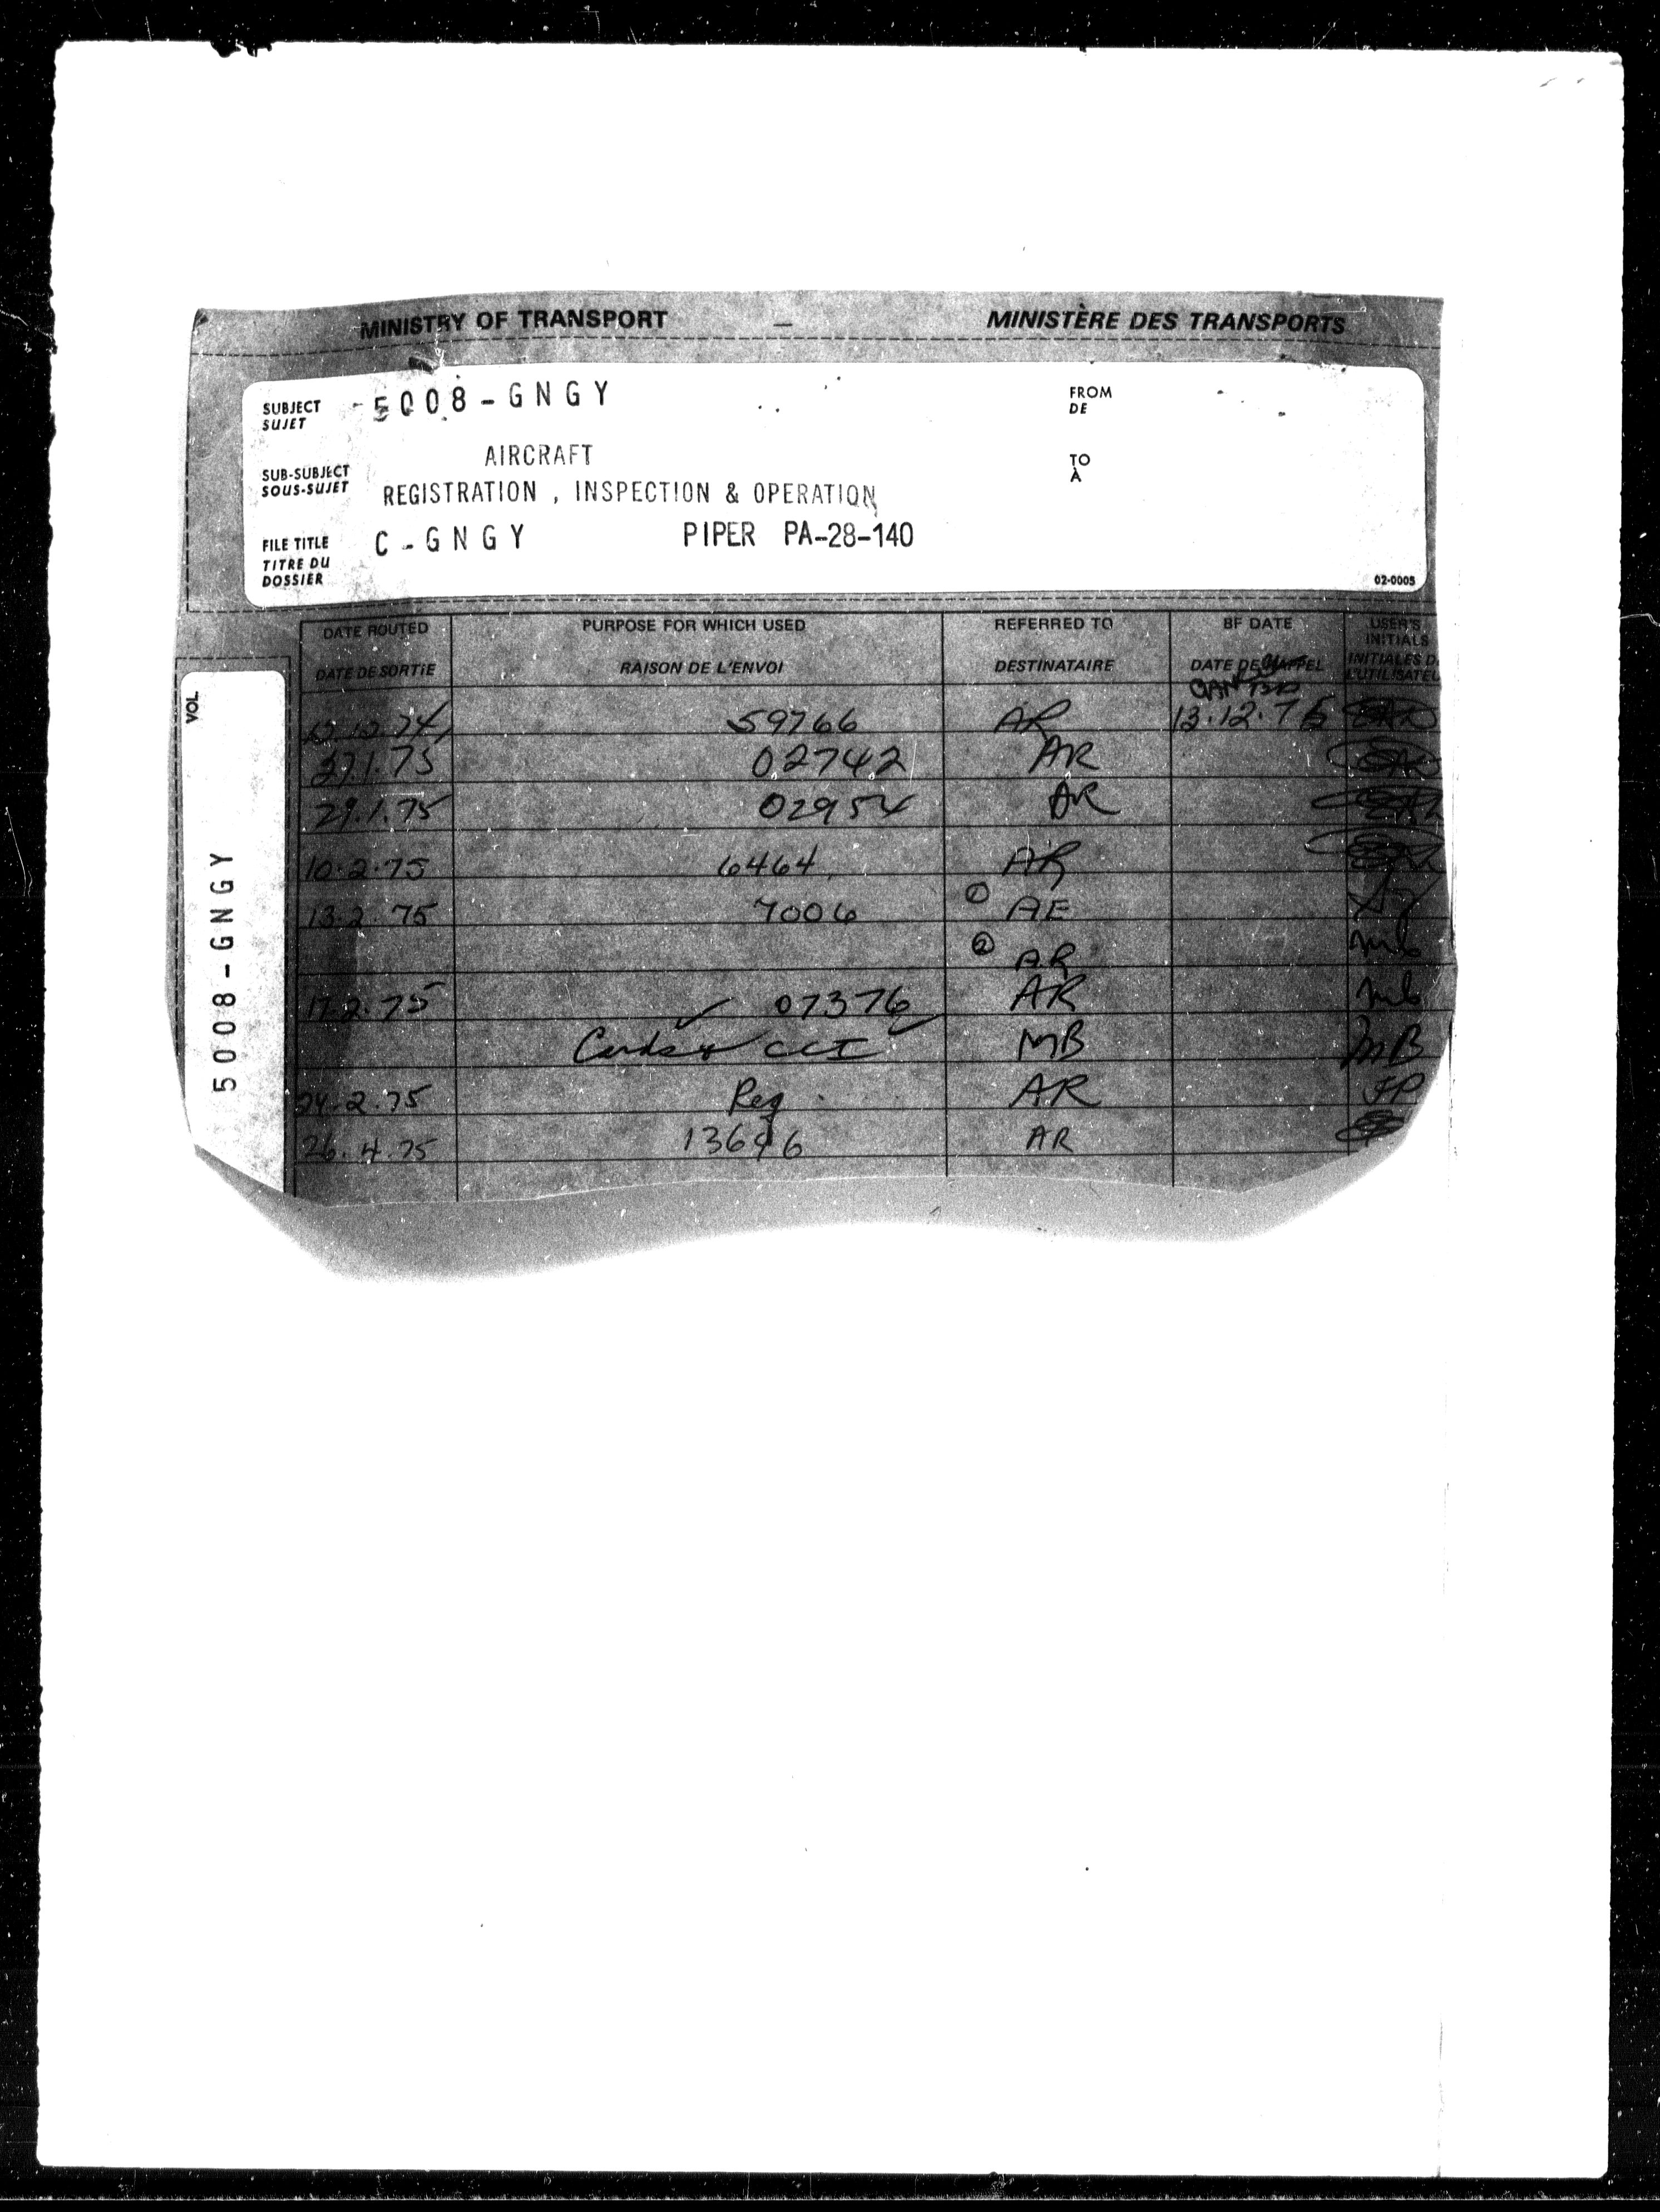 MINISTRY OF TRANSPORT — MINISTÈRE DES TRANSPORTS
SUBJECT 5008-GNGY FROM
SUJET DE
AIRCRAFT
SUB-SUBJECT TO
SOUS-SUJET REGISTRATION , INSPECTION & OPERATION À
FILE TITLE C-GNGY PIPER PA-28-140
TITRE DU
DOSSIER 02-0005
DATE ROUTED PURPOSE FOR WHICH USED REFERRED TO BF DATE USER'S
INITIALS
DATE DE SORTIE RAISON DE L'ENVOI DESTINATAIRE DATE DE INITIALES D
VOL.
5008-GNGY
59766 AR 13.12.75
27.1.75 02742 AR
29.1.75 02954 AR
10.2.75 6464 AR
13.2.75 7006 ① AE
② A.R mb
17.2.75 07376 AR mb
Cards & CCI MB MB
24.2.75 Reg AR JP
26.4.75 13696 AR